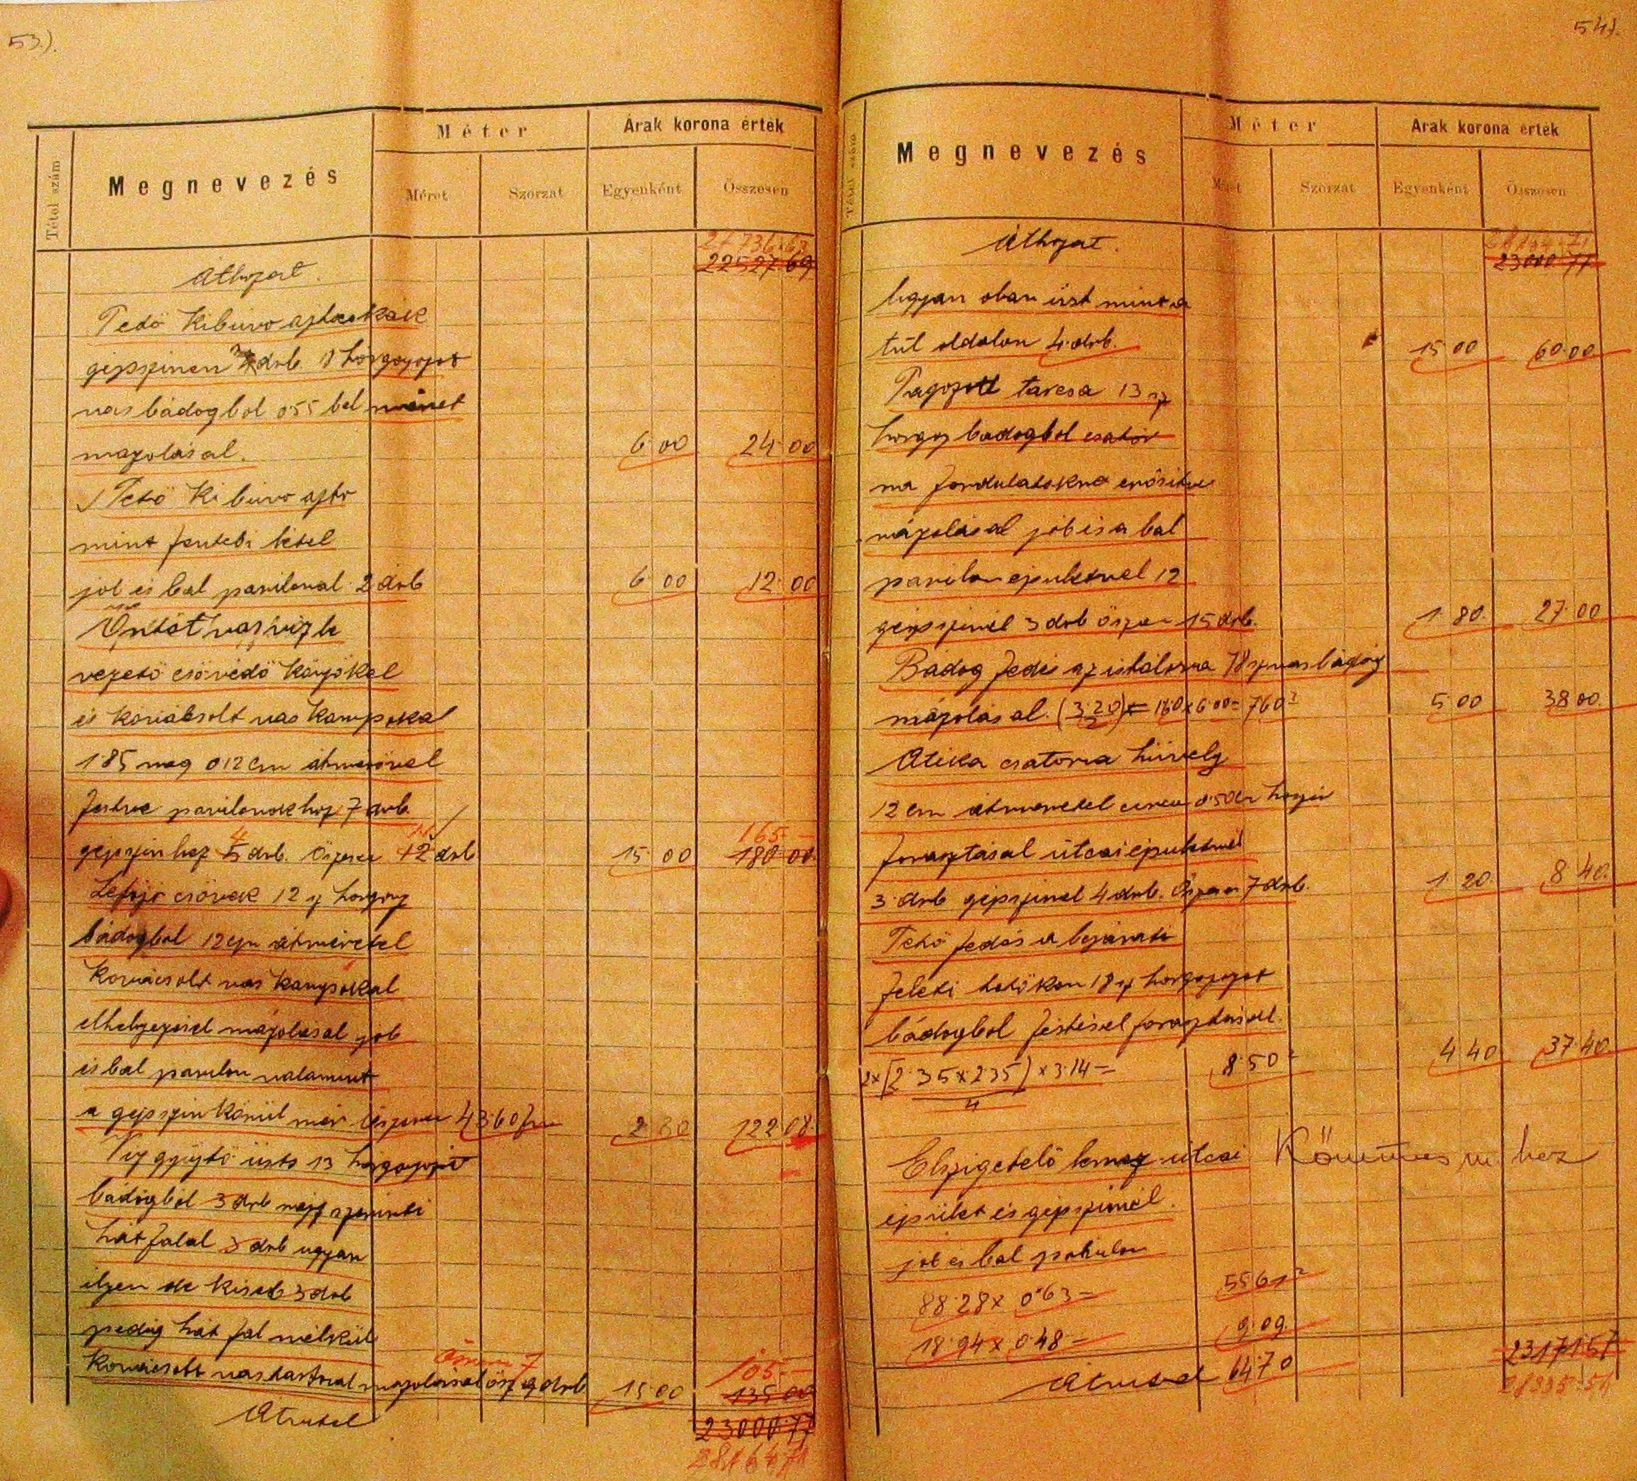 53.)
Tétel szám
Megnevezés
Méter
Méret
Szorzat
Árak korona érték
Egyenként
Összesen
Áthozat.
22527 69
Tető kibúvo ajtócskák
gépszinen drb
vas bádogbol 055 bel méret
mázolásal. 6 00 24 00
Tető Ki buvo ajto
mint fentebi tétel
job és bal pavilonal 2 drb 6 00 12 00
Öntöt vas viz le
vezető csővédő Könyökel
és Kovácsolt vas Kampokal
185 mag 012 cm átmérővel
festve pavilonok hoz 7 drb.
gépszin hez 4 drb. Öszesen drb 15 00 165 180 00
Lefojo csövek 12 sz horgony
bádogbol 12 cm átméretel
Kovácsolt vas Kampokal
elhelyezésel mázolásal job
és bal pavilon valamint
a gépszin Körül mér öszesen 43.60 fm 2 80 122 08
Viz gyüjtö üsts 13 horgonyozot
bádogbol 3 drb rajz szerinti
hát falal 3 drb ugyan
ilyen de kiseb 3 drb
pedig hát fal nélkül
Kovácsolt vastartoval mázolásal ösz 9 drb 15 00 105 135 00
Átvitel 23000.77
54).
Tétel szám
Megnevezés
Méter
Méret
Szorzat
Árak korona érték
Egyenként
Összesen
Áthozat.
23000 77
Ugyan olyan üst mint a
túl oldalon 4 drb. 15 00 60 00
Tagozott tárcsa 13 sz
horgoz badogbol csator
na fordulatokra erősitve
mázolásal job és a bal
pavilon épületnél 12
gépszinél 3 drb öszesen 15 drb. 1 80 27 00
Bádog fedés az istálora 18 sz vas bádog
mázolásal. 5 00 38 00
Atika csatorna hüvely
12 cm átméretel
forasztásal útcai épületnél
3 drb gépszinel 4 drb. Öszesen 7 drb. 1 20 8 40
Tető fedés a bejárati
feleti tetőkön 18 sz horgozot
bádogbol festésel forasztásal.
2×(2.35×235)×3.14= 8.50² 4 40 37 40
4
Elszigetelő lemez útcai Kőműves m. hez
épület és gépszinél.
job és bal pavilon
88.28× 0.63= 5561²
18.94× 0.48= 9.09
Átvitel 64.70 23171.57